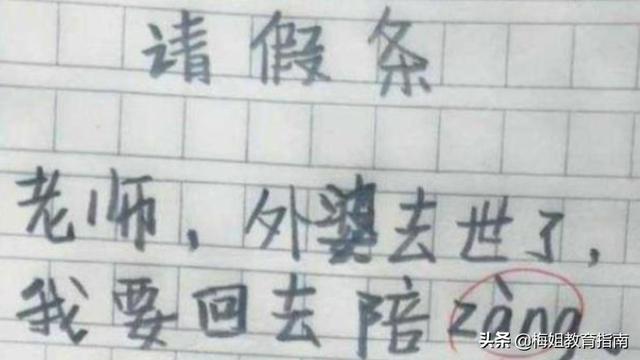 请假条
老师，外婆去世了，
我要回去陪zàng。
头条 @梅姐教育指南